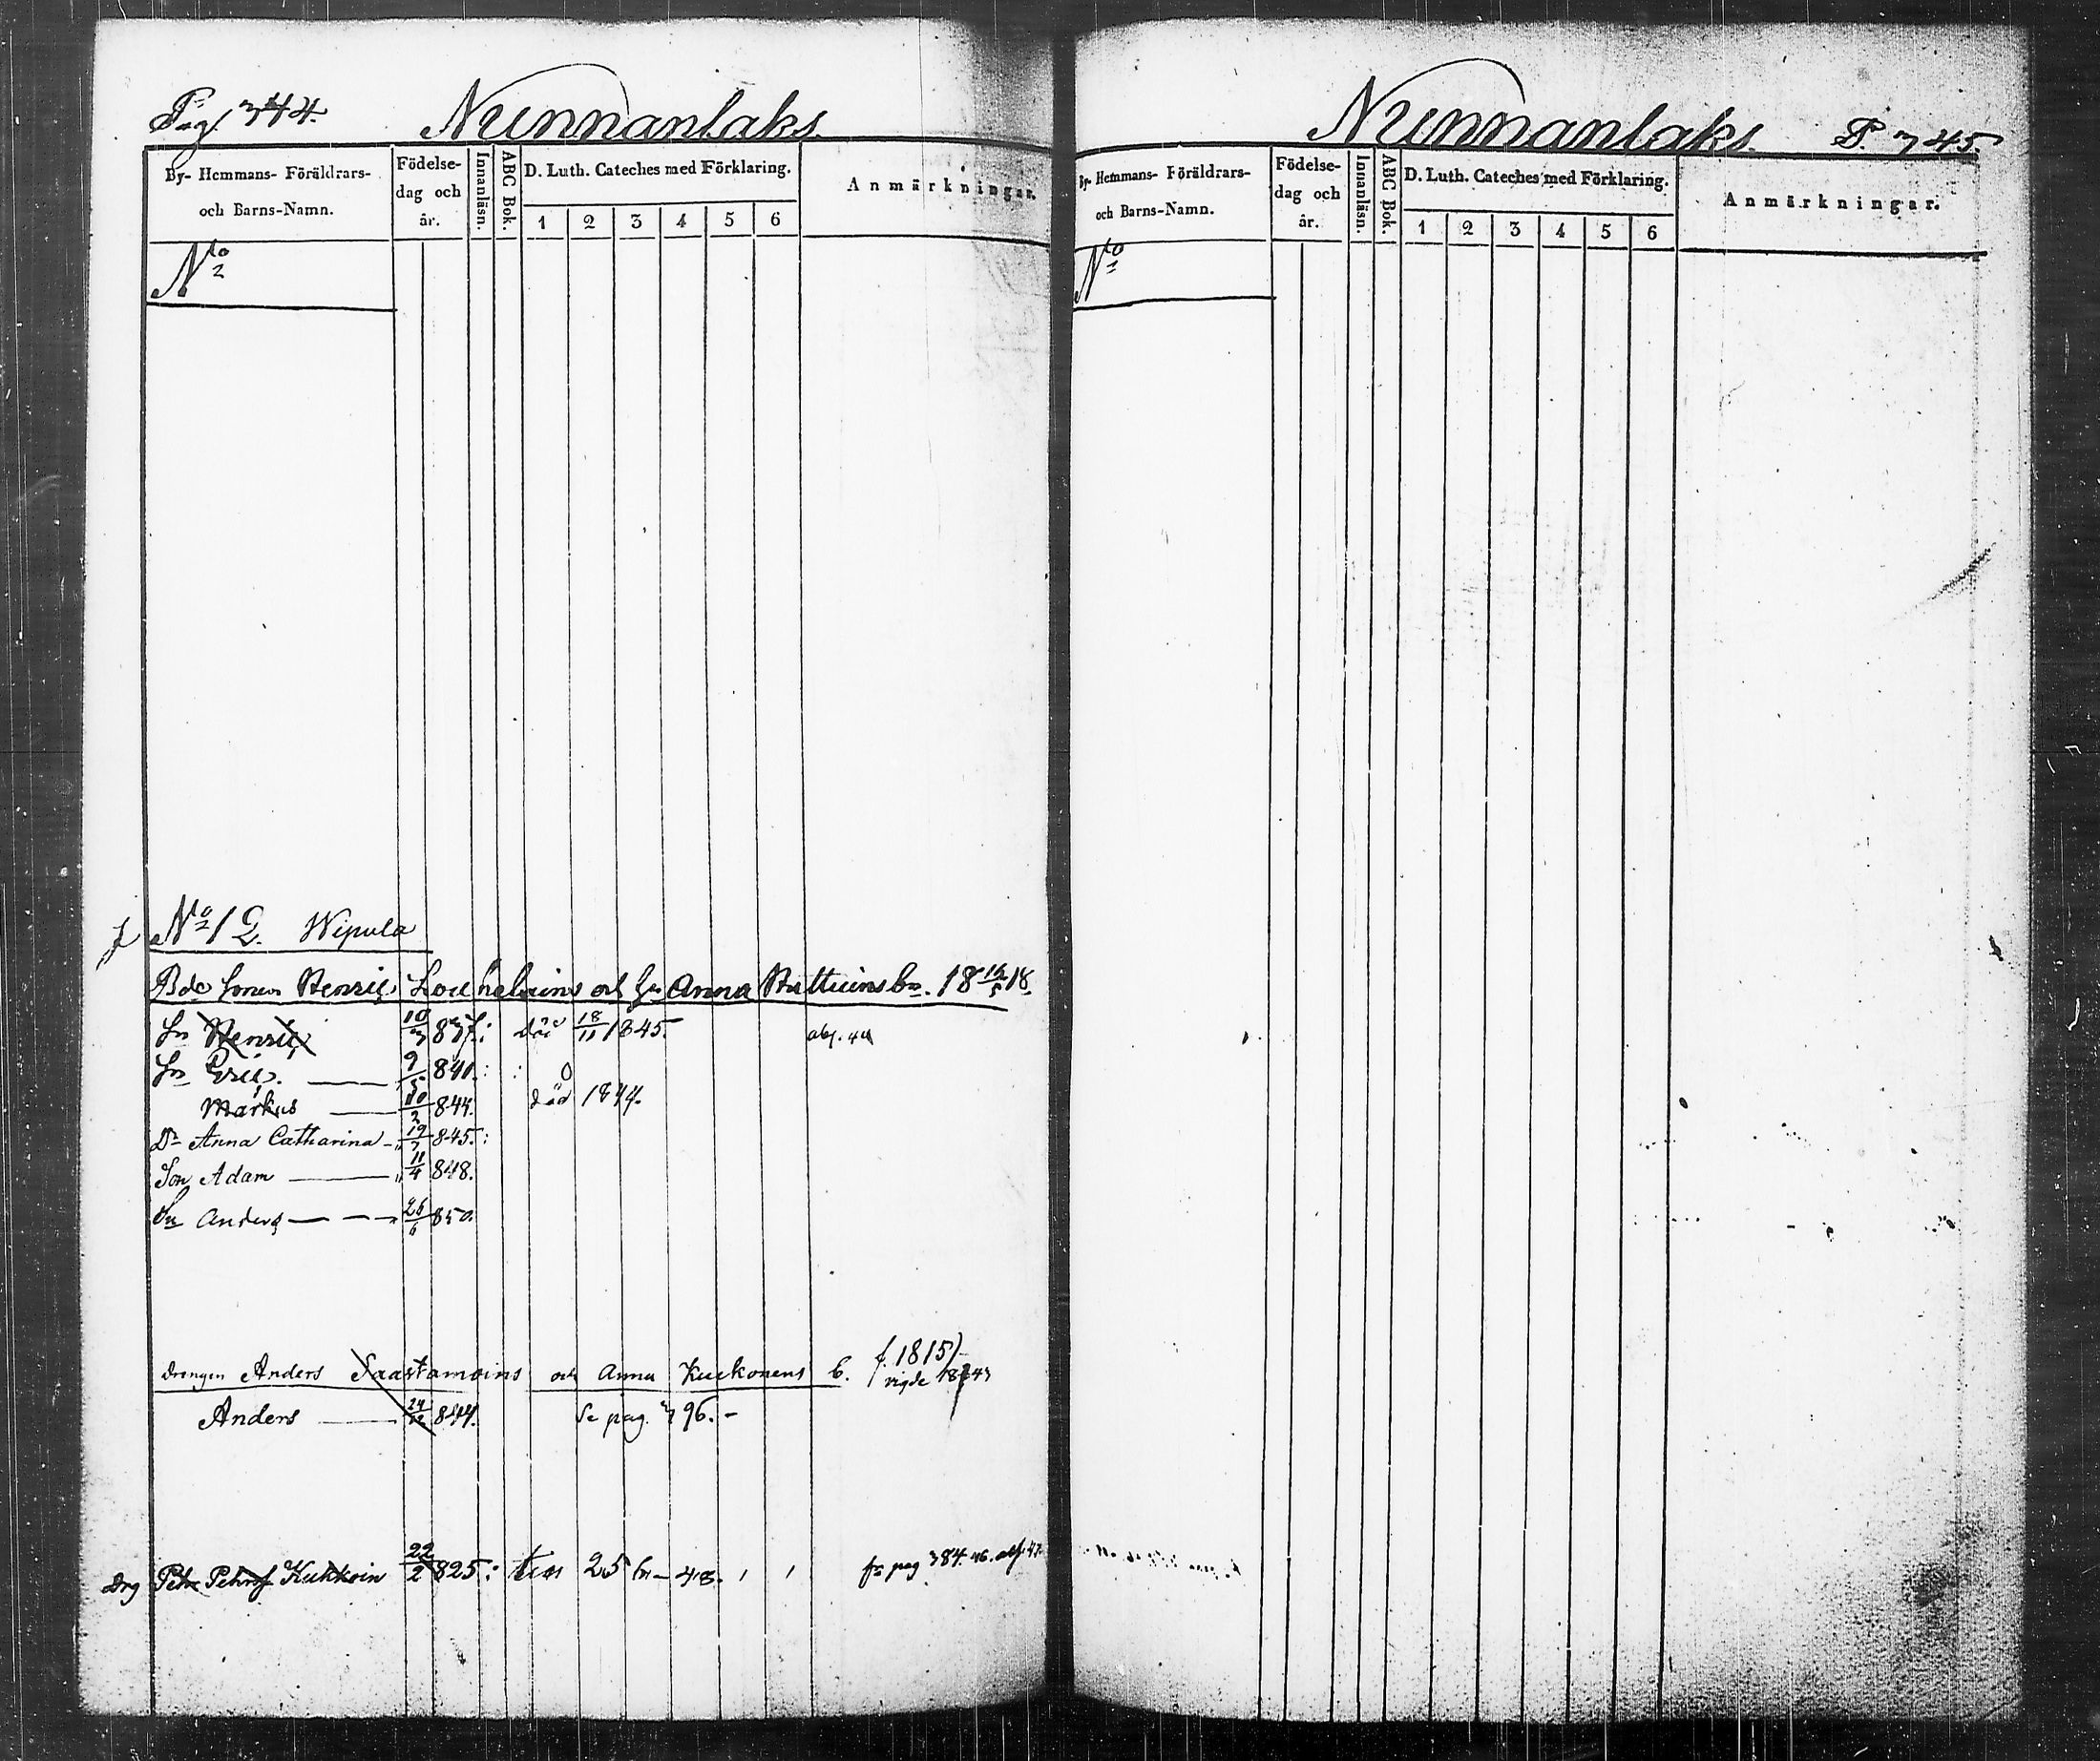 Pag. 344.
Nunnanlaks.
By- Hemmans- Föräldrars- och Barns-Namn.
Födelse- dag och år.
Innanläsn.
ABC Bok.
D. Luth. Cateches med Förklaring.
1 2 3 4 5 6
Anmärkningar.
No
No 12. Wipula
Bde Henric Louhelains och Anna 18 18
Sn Henric 10/3 837: död 18/11 1845.
Sn Eric. 9/5 841.:
Markus 10/2 844. död 1844.
Dr Anna Catharina 19/7 845:
Son Adam 11/4 848.
Sn Anders 26/6 850.
f. 1815)
Drengen Anders Saastamoins och Anna Kuckonens b. vigde 1843
Anders 24/12 844. Se pag. 396.
Drg Petr Petrsf Kukkoin 22/2 825: 25 48. fr pag 384. 46.
Nunnanlaks.
P. 345.
By- Hemmans- Föräldrars- och Barns-Namn.
Födelse- dag och år.
Innanläsn.
ABC Bok.
D. Luth. Cateches med Förklaring.
1 2 3 4 5 6
Anmärkningar.
No